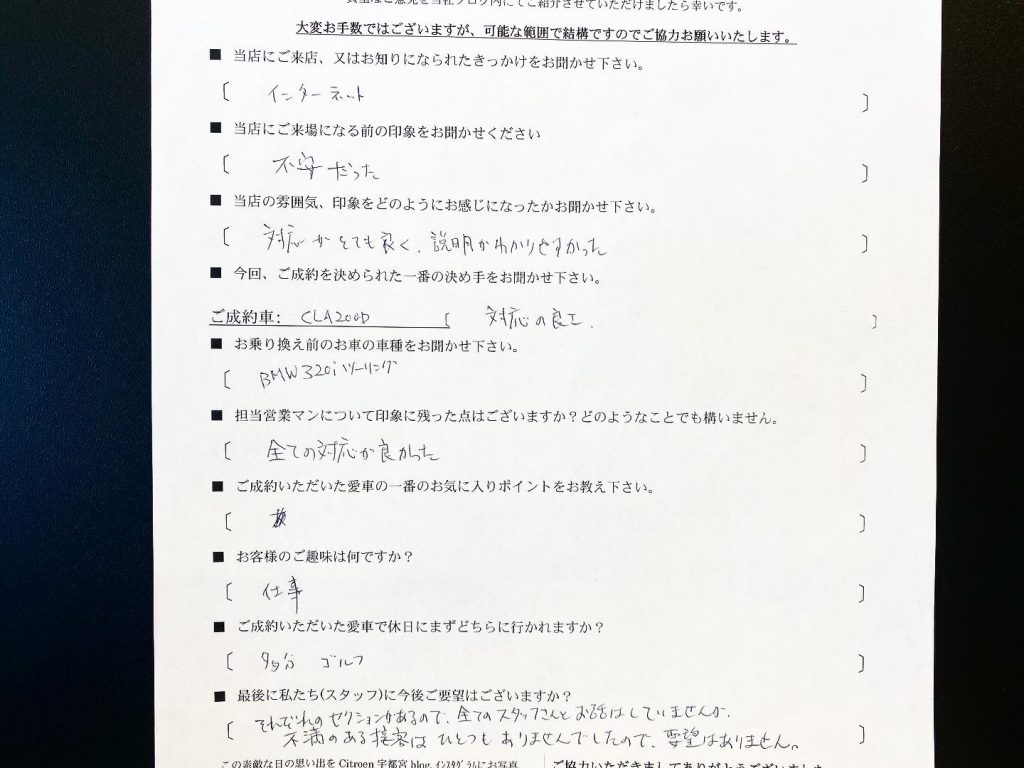 貴重なご意見を当社ブログ内にてご紹介させていただけましたら幸いです。
大変お手数ではございますが、可能な範囲で結構ですのでご協力お願いいたします。
■ 当店にご来店、又はお知りになられたきっかけをお聞かせ下さい。
〔 インターネット 〕
■ 当店にご来場になる前の印象をお聞かせください
〔 不安だった 〕
■ 当店の雰囲気、印象をどのようにお感じになったかお聞かせ下さい。
〔 対応がとても良く、説明がわかりやすかった 〕
■ 今回、ご成約を決められた一番の決め手をお聞かせ下さい。
ご成約車: CLA200D 〔 対応の良さ. 〕
■ お乗り換え前のお車の車種をお聞かせ下さい。
〔 BMW320iツーリング 〕
■ 担当営業マンについて印象に残った点はございますか？どのようなことでも構いません。
〔 全ての対応が良かった 〕
■ ご成約いただいた愛車の一番のお気に入りポイントをお教え下さい。
〔 〕
■ お客様のご趣味は何ですか？
〔 仕事 〕
■ ご成約いただいた愛車で休日にまずどちらに行かれますか？
〔 多分 ゴルフ 〕
■ 最後に私たち(スタッフ)に今後ご要望はございますか？
〔 それぞれのセクションがあるので、全てのスタッフさんとお話はしていませんが、
不満のある接客はひとつもありませんでしたので、要望はありません。 〕
この素敵な日の思い出を Citroen 宇都宮 blog, ｲﾝｽﾀｸﾞﾗﾑにお写真
ご協力いただきましてありがとうございました